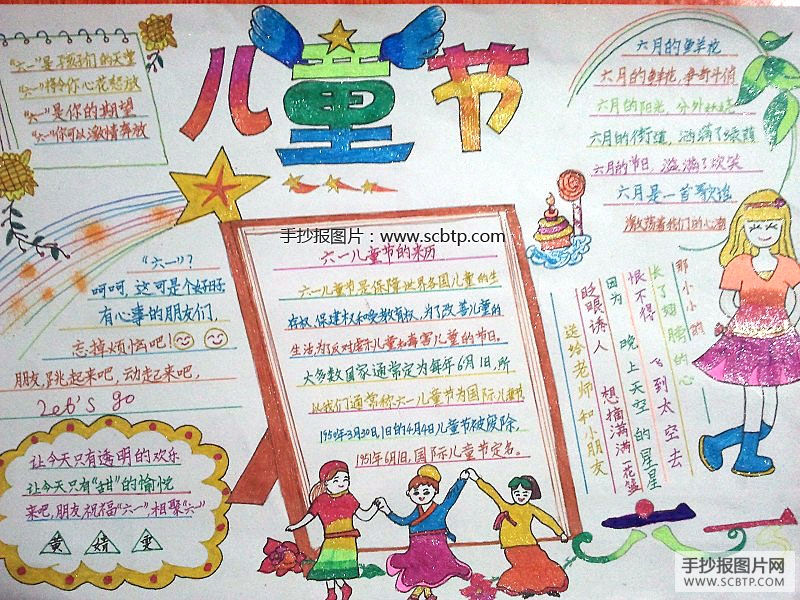 儿童节
"六一"是孩子们的天堂
"六一"将令你心花怒放
"六一"是你的期望
"六一"你可以激情奔放
六月的鲜花
六月的鲜花,争奇斗
六月的阳光,分外
六月的街道,洒满了绿荫
六月的节日,溢满了欢笑
六月是一首歌谣
激荡着我们的心潮
手抄报图片：www.scbtp.com
六一儿童节的来历
六一儿童节是保障世界各国儿童的生
存权、保建权和受教育权,为了改善儿童的
生活为了反对虐杀儿童和毒害儿童的节日。
大多数国家通常定为每年6月1日,所
以我们通常称六一儿童节为国际儿童节
1950年3月30日,1日的4月4日儿童节被废除,
1951年6月1日,国际儿童节定名。
"六一"?
呵呵,这可是个好日子
有心事的朋友们,
忘掉烦恼吧!
朋友,跳起来吧,动起来吧,
Let's go
让今天只有透明的欢乐
让今天只有"甜"的愉悦
来吧,朋友祝福"六一",相聚"六一"
黄 婧 雯
那小小的
长了翅膀的心
恨不得 飞到太空去
因为 晚上天空的星星
眨眼诱人 想摘满满一花篮
送给老师和小朋友
手抄报图片网
WWW.SCBTP.COM